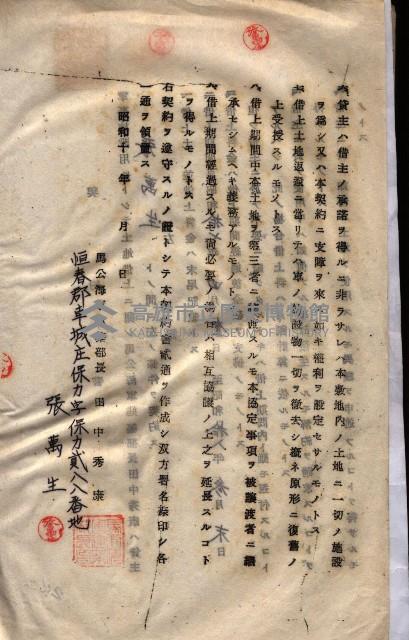 六、貸主ハ借主ノ承諾ヲ得ルニ非ラサレハ本敷地内ノ土地ニ一切ノ施設
ヲ爲シ又ハ本契約ニ支障ヲ來ス如キ權利ヲ設定セサルモノトス
七、借上土地返還ニ當リテハ軍ノ施設物一切ヲ徹去シ概ネ原形ニ復舊ノ
上受授スルモノトス
八、借上期間中本土地ヲ第三者ニ
本協定事項ヲ被讓渡者ニ繼
承セシムヘキ義務アルモノトス
九、借上期間經過スルモ尚必要
相互協議ノ上之ヲ延長スルコト
ヲ得ルモノトス
右契約ヲ遵守スルノ證トシテ本契約書貳通ヲ作成シ双方署名捺印シ各
一通ヲ領置ス
昭和十 年 月 日
馬公 部長 田中秀
恒春郡車城庄保力字保力貳八八番地
張萬生
高雄市立歷史博物館
KAOHSIUNG MUSEUM OF HISTORY